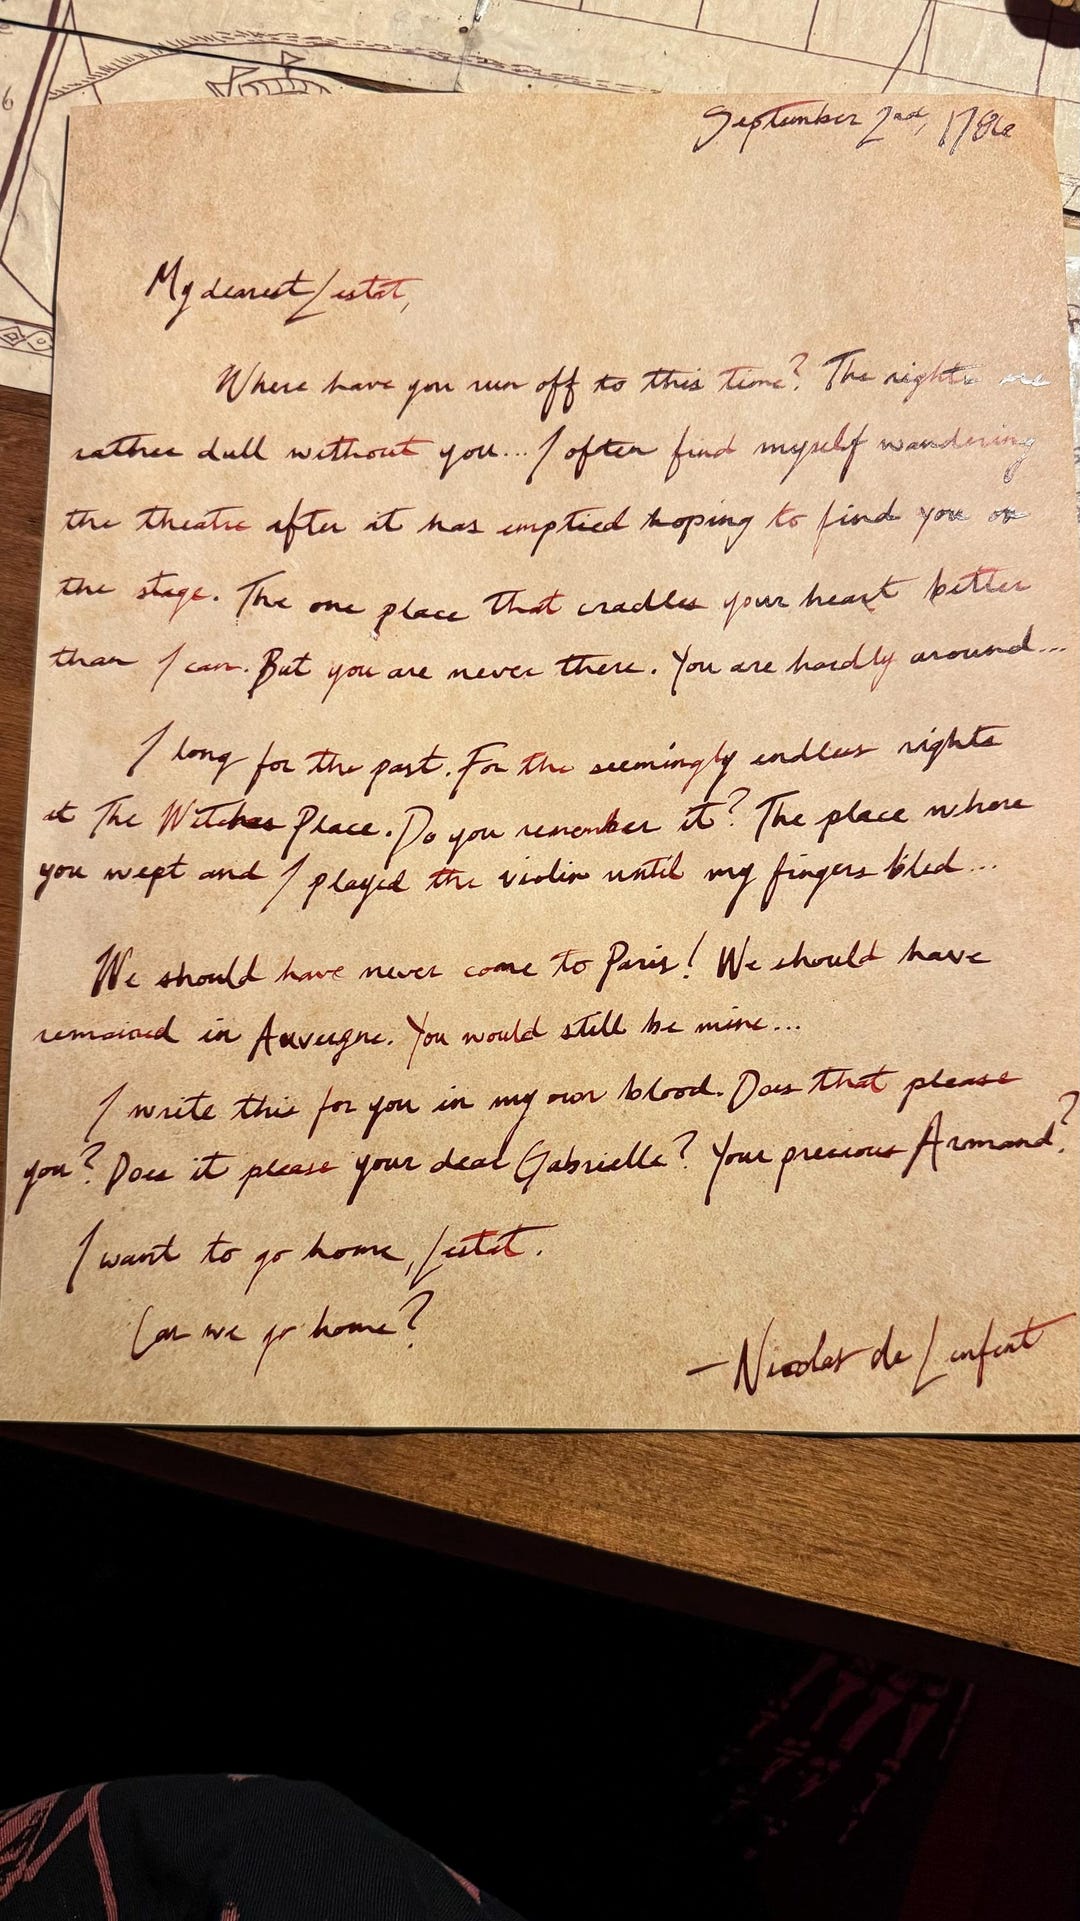 September 2nd, 1786
My dearest Lestat,
Where have you run off to this time? The nights are
rather dull without you... I often find myself wandering
the theatre after it has emptied hoping to find you on
the stage. The one place that cradles your heart better
than I can. But you are never there. You are hardly around...
I long for the past. For the seemingly endless nights
at The Witches Place. Do you remember it? The place where
you wept and I played the violin until my fingers bled...
We should have never come to Paris! We should have
remained in Auvergne. You would still be mine...
I write this for you in my own blood. Does that please
you? Does it please your dear Gabrielle? Your precious Armand?
I want to go home, Lestat.
Can we go home?
- Nicolas de Lenfent